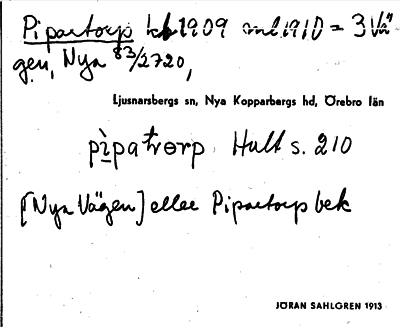 Pipartorp hb 1909 ml. 1910 = 3 Vä"
gen, Nya 83/2720,
Ljusnarsbergs sn, Nya Kopparbergs hd, Örebro län
pìpatrorp Hult s. 210
[Nya Vägen] eller Pipartorp bek
JÖRAN SAHLGREN 1913